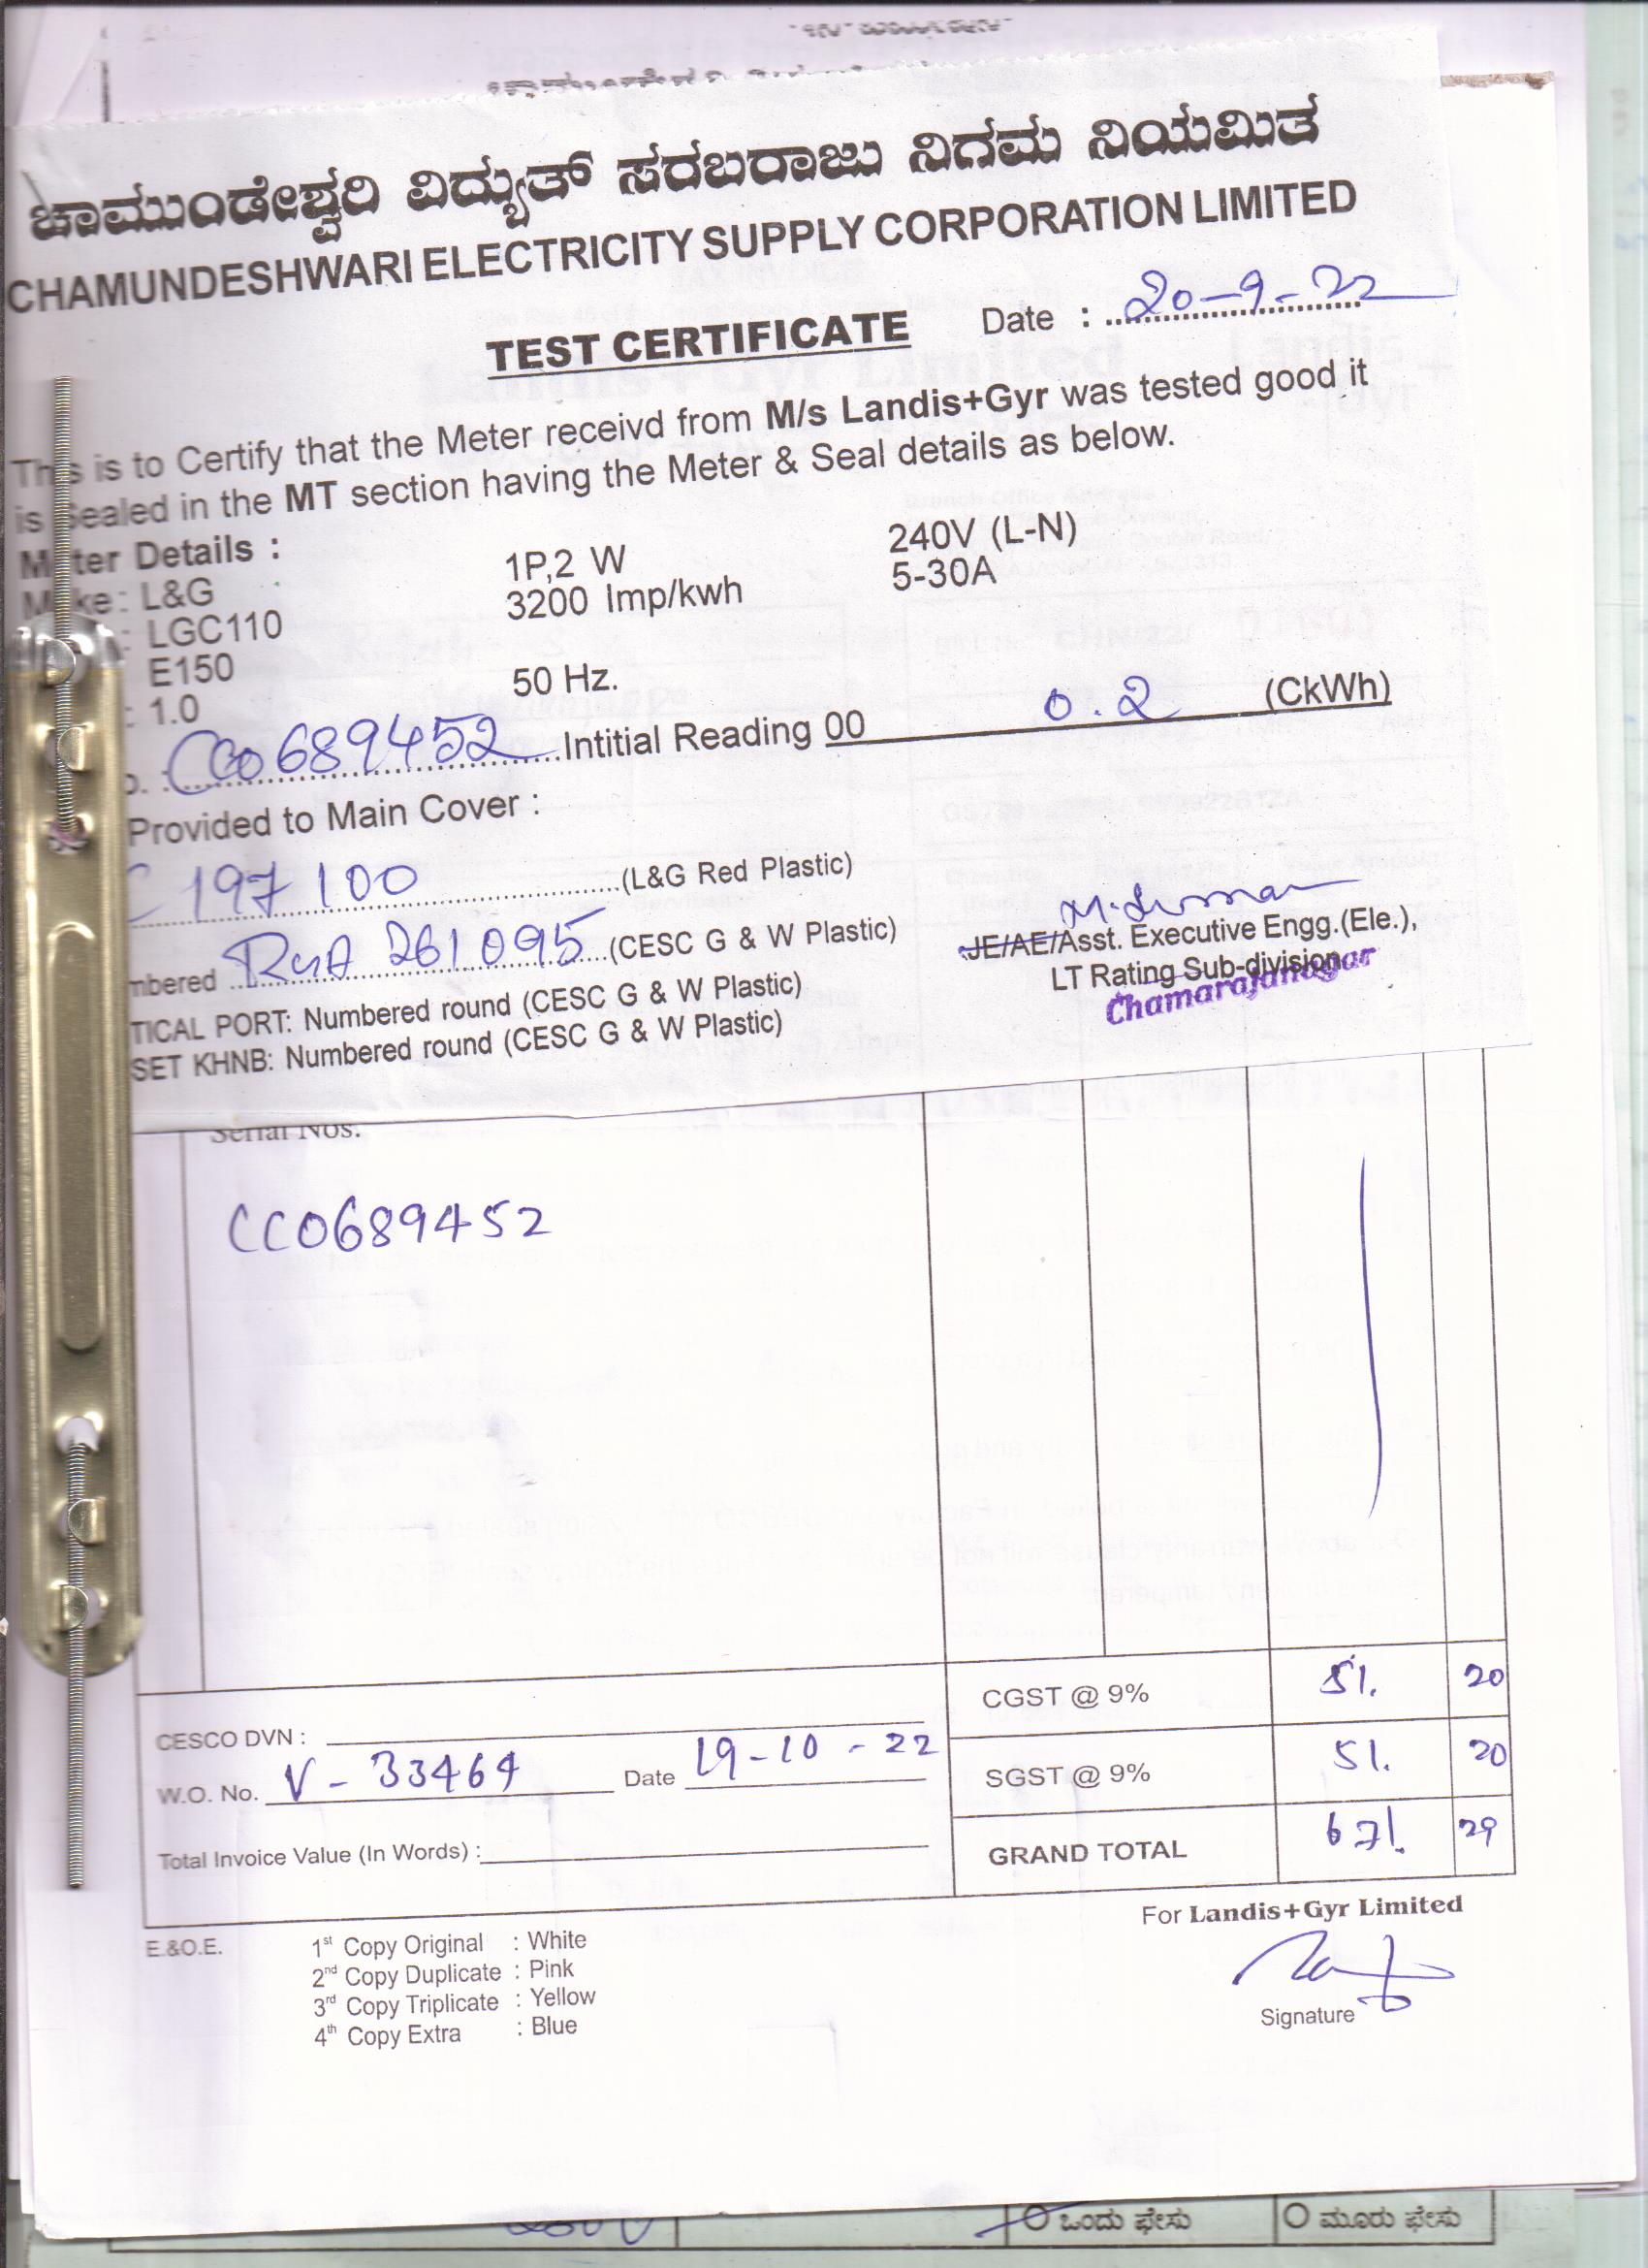 ಚಾಮುಂಡೇಶ್ವರಿ ವಿದ್ಯುತ್ ಸರಬರಾಜು ನಿಗಮ ನಿಯಮಿತ
CHAMUNDESHWARI ELECTRICITY SUPPLY CORPORATION LIMITED
TEST CERTIFICATE Date : 20-9-22
This is to Certify that the Meter receivd from M/s Landis+Gyr was tested good it
is Sealed in the MT section having the Meter & Seal details as below.
Meter Details :
Make : L&G 1P,2 W 240V (L-N)
: LGC110 3200 Imp/kwh 5-30A
E150
: 1.0 50 Hz.
CC0689452 Intitial Reading 00 0.2 (CkWh)
Provided to Main Cover :
C 197100 (L&G Red Plastic)
261095 (CESC G & W Plastic)
M. Suman
JE/AE/Asst. Executive Engg.(Ele.),
LT Rating Sub-division
Chamarajanagar
TICAL PORT: Numbered round (CESC G & W Plastic)
SET KHNB: Numbered round (CESC G & W Plastic)
Serial Nos.
CC0689452
CGST @ 9% 51. 20
CESCO DVN :
W.O. No. V - 33464 Date 19-10-22
SGST @ 9% 51. 20
Total Invoice Value (In Words) :
GRAND TOTAL 671. 29
For Landis+Gyr Limited
E.&O.E.
1st Copy Original : White
2nd Copy Duplicate : Pink
3rd Copy Triplicate : Yellow
4th Copy Extra : Blue
Signature
ಒಂದು ಫೇಸು ಮೂರು ಫೇಸು